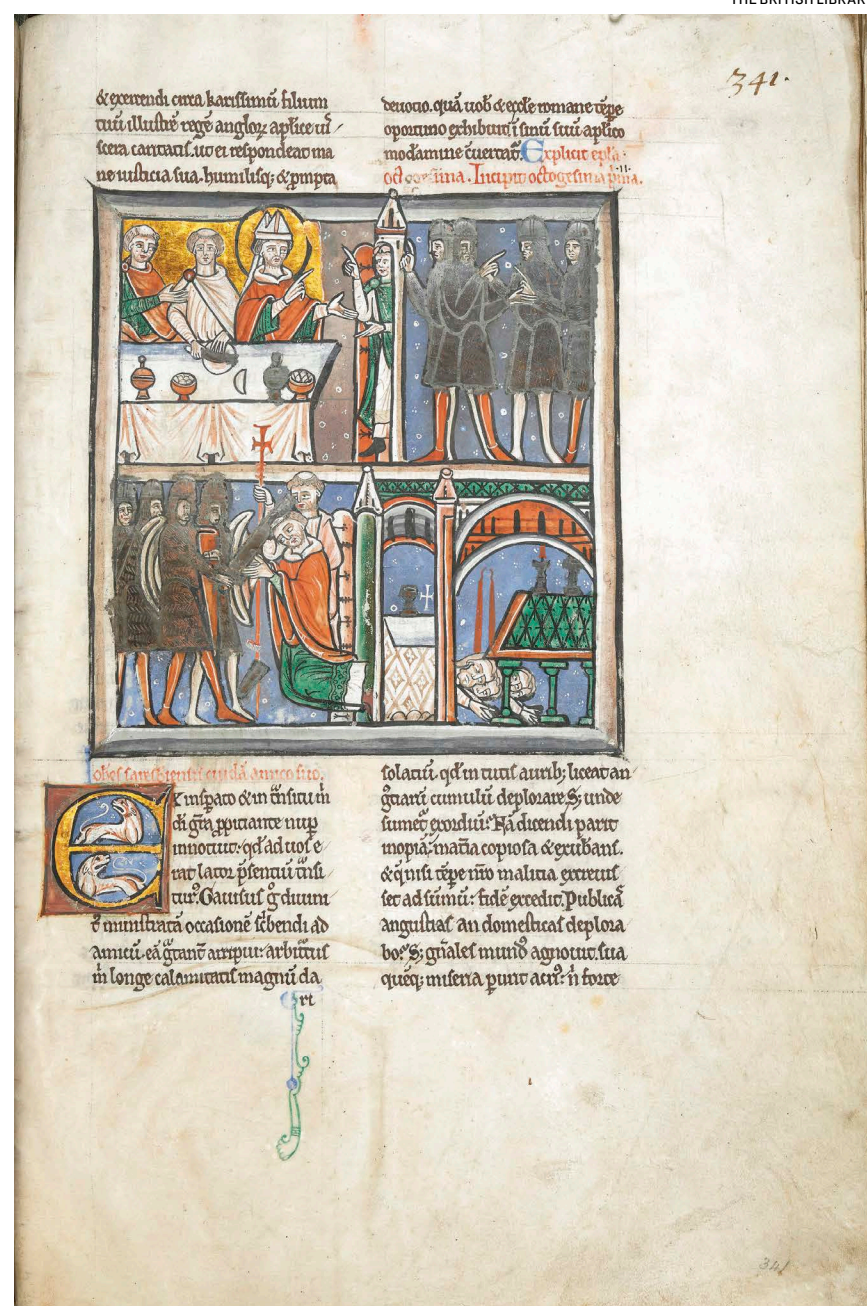 THE BRITISH LIBRAR
341.
& exercendi circa karissimū filium
tuū illustrē regē angloꝝ aplice ui/
scera caritatis. ut ei respondeat ma
ne iusticia sua. humilisq; & pmpta
deuotio. quā uob & eccle romane tēpe
oportuno exhibuit ī sinū suū aplico
modamine cuertat. Explicit epla.
octogesima. Incipit octogesima pma.
ohes saresbiensis cuidā amico suo.
Ex insperato & in tnsitu m
di gra ppitiante nup
innotuit. qd ad uos e
rat lator psentiū tnsi
tur. Gauisus g diuini
t ministratā occasionē scbendi ad
amicū. eā gtant arripui. arbitrus
in longe calamitatis magnū da
ri
solatiū. qd in tutis aurib; liceat an
gtiarū cumulū deplorare. S; unde
sumet exordiū. Nā dicendi parit
inopiā. matia copiosa & exubans.
& q nisi tēpe imo malitia excreuis
set ad sūmū. fidē excedit. Publicas
angustias an domesticas deplora
bo. S; gnales mund agnouit. sua
quēq; miseria punt aci. n forte
341